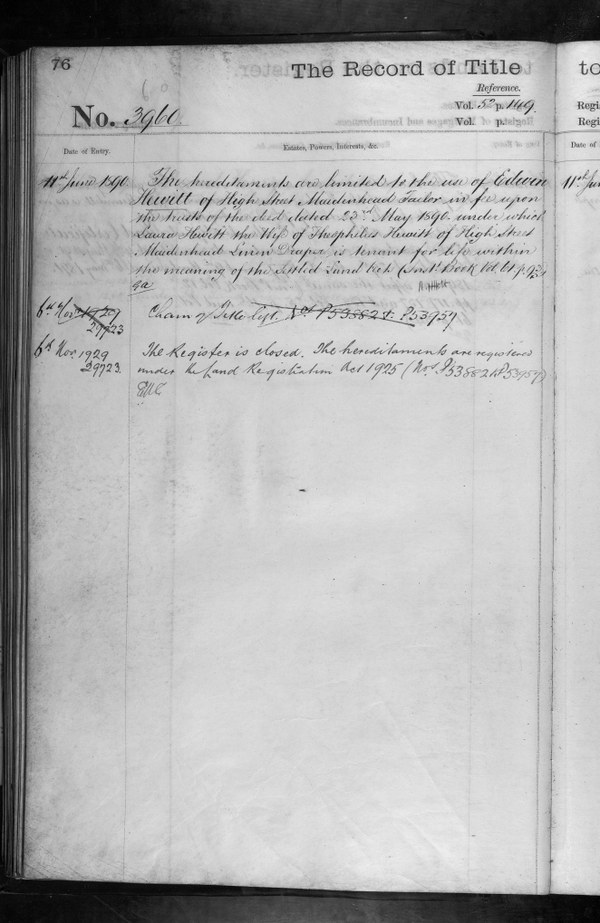 76
The Record of Title
Reference.
Vol. 52 p. 149.
No. 3960.
Vol. p.
Date of Entry.
Estates, Powers, Interests, &c.
11th June 1890
The hereditaments are limited to the use of Edwin
Hewitt of High Street Maidenhead Tailor in fee upon
the trusts of the deed dated 23rd May 1890 under which
Laura Hewitt the Wife of Theophilus Hewitt of High Street
Maidenhead Linen Draper is tenant for life within
the meaning of the Settled Land Acts (Inst. Book Vol.
6th Nov. 1929
29723
Chain of Title Regt. Nos P53882 & P53957
6th Nov. 1929
29723.
The Register is closed. The hereditaments are registered
under the Land Registration Act 1925 (Nos P53882 & P53957)
to
Regi
Regi
Date of
11th Jun